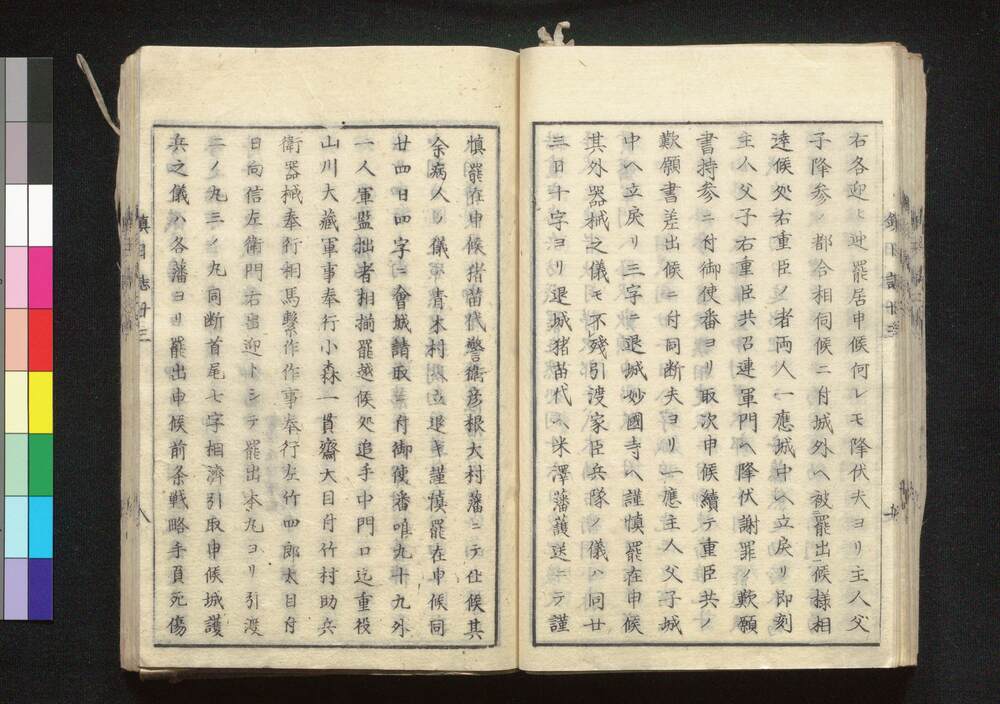 右各迎ヒ迎罷居申候何レモ降伏夫ヨリ主人父
子降参ノ都合相伺候ニ付城外ヘ被罷出候様相
達候処右重臣ノ者両人一應城中ヘ立戻リ即刻
主人父子右重臣共召連軍門ヘ降伏謝罪ノ歎願
書持参ニ付御使番ヨリ取次申候續テ重臣共ノ
歎願書差出候ニ付同断夫ヨリ一應主人父子城
中ヘ立戻リ三字ニ退城妙國寺ヘ謹慎罷在申候
其外器械之儀モ不残引渡家臣兵隊ノ儀ハ同廿
三日十字ヨリ退城猪苗代ヘ米澤藩護送ニテ謹
慎罷在申候猪苗代警衛彦根大村藩ニテ仕候其
余病人ノ儀ハ青木村ヘ立退キ謹慎罷在申候同
廿四日四字ニ會城請取ニ付御使番唯九十九外
一人軍監拙者相揃罷越候処追手中門口迄重役
山川大藏軍事奉行小森一貫齋大目付竹村助兵
衛器械奉行相馬繋作作事奉行左竹四郎太目付
日向信左衛門右出迎トシテ罷出本丸ヨリ引渡
二ノ丸三ノ丸同断首尾七字相濟引取申候城護
兵之儀ハ各藩ヨリ罷出申候前条戦略手負死傷
鎮日志廿三
八